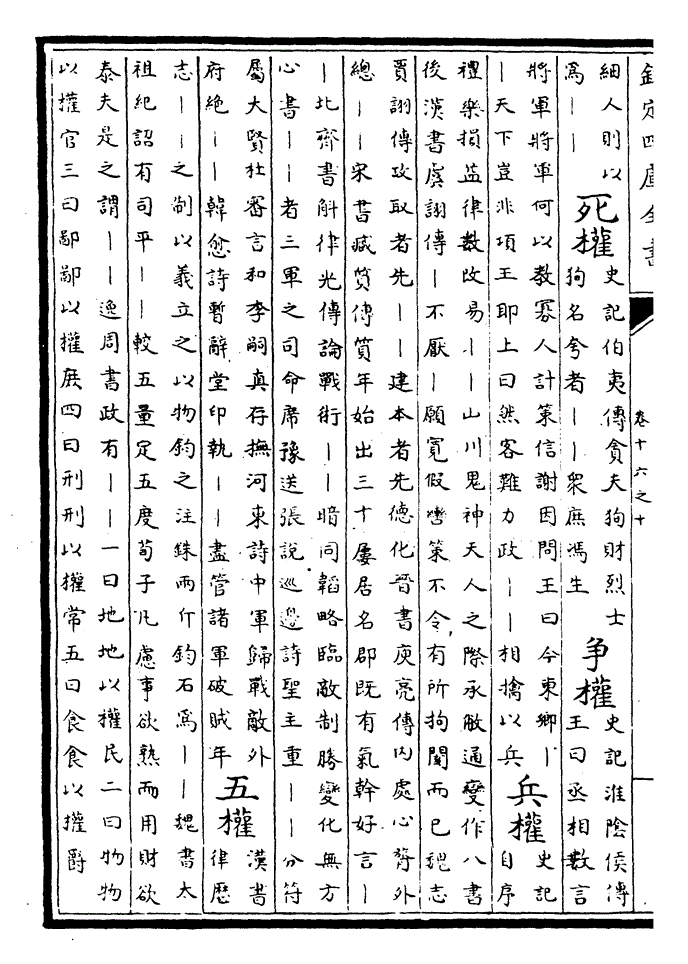 欽定四庫全書
卷十六之十
細人則以
爲｜｜
死權
史記伯夷傳貪夫狥財烈士
狥名夸者｜｜衆庶馮生
争權
史記淮陰侯傳
王曰丞相數言
將軍將軍何以教寡人計策信謝因問王曰今東鄉｜
｜天下豈非項王耶上曰然客難力政｜｜相擒以兵
兵權
史記
自序
禮樂損益律數改易｜｜山川鬼神天人之際承敝通變作八書
後漢書虞詡傳｜不厭｜願寛假轡策不令有所拘閡而已魏志
賈詡傳攻取者先｜｜建本者先德化晉書庾亮傳内處心膂外
總｜｜宋書臧質傳質年始出三十屢居名郡既有氣幹好言｜
｜北齊書斛律光傳論戰術｜｜暗同韜略臨敵制勝變化無方
心書｜｜者三軍之司命席豫送張說巡邊詩聖主重｜｜分符
屬大賢杜審言和李嗣真存撫河東詩中軍歸戰敵外
府絶｜｜韓愈詩暫辭堂印執｜｜盡管諸軍破賊年
五權
漢書
律歴
志｜｜之制以義立之以物鈞之注銖兩斤鈞石爲｜｜魏書太
祖紀詔有司平｜｜較五量定五度荀子凡慮事欲熟而用財欲
泰夫是之謂｜｜逸周書政有｜｜一曰地地以權民二曰物物
以權官三曰鄙鄙以權庶四曰刑刑以權常五曰食食以權爵